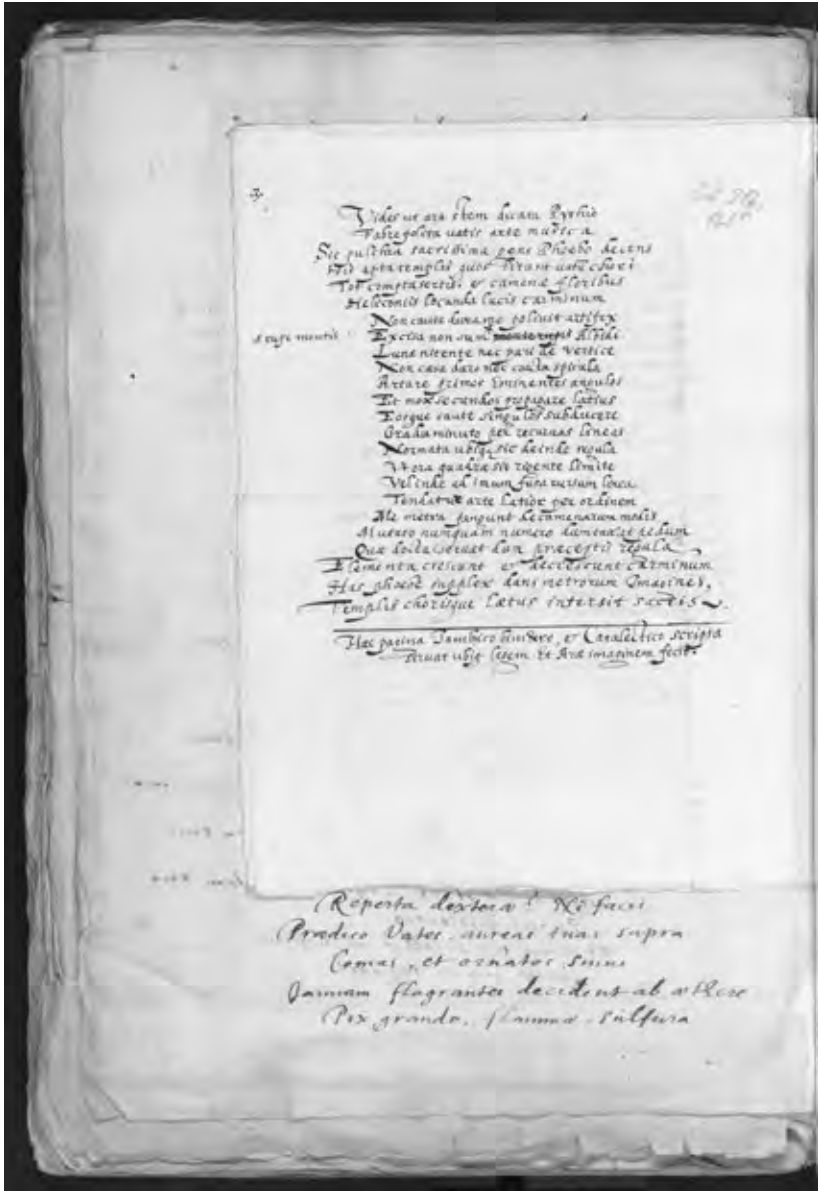 3.
Vides ut ara stem dicata Pythio
Fabre polita vatis arte musica
Sic pulchra sacris sima gens Phoebo decens
Hic apta templis quos litant vatu chori
Tot compta sertis, et camenæ floribus
Heliconiis locanda lucis carminum
Non caute dura me polivit artifex
A rupe montis
Excisa non sum Albidi
Luna nitente nec pari de vertice
Non cæsa duro nec coacta spiculo
Artare primos Eminentes angulos
Et mox secundos propagare latius
Eosque caute singulos subducere
Gradu minuto per recurvas lineas
Normata ubiq; sic deinde regula
Ut ora quadræ sit rigente limite
Vel inde ad imum fusa rursum linea
Tendatur arte latior per ordinem
Me metra pangunt de camenarum modis
Mutato numquam numero dumtaxat pedum
Quæ docta servat dum præceptis regula
Elementa crescunt et decrescunt carminum
Has phoebe supplex dans metrorum Imagines,
Templis chorisque Lætus intersit sacris
Hæc pagina Iambico et Catalectico scripta
servat ubiq legem Et Aræ imaginem fecit.
Reperta dextera! Ne faxi
Prædico Vates aureas tuas supra
Comas, et ornatos sinus
Jamiam flagrantes decident ab æthere
Pix, grando, flammæ, sulfura